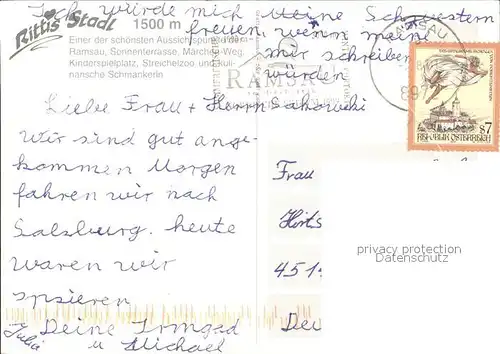 Ich würde mich Meine Schwestern
freuen, wenn mein
mir schreiben
würden
Rittis Stadl
1500 m
Einer der schönsten Aussichtspunkte der
Ramsau, Sonnenterrasse, Märchen-Weg,
Kinderspielplatz, Streichelzoo und kuli-
narische Schmankerln
RAMSAU
S7
REPUBLIK ÖSTERREICH
Liebe Frau + Herrn Sakowski
Wir sind gut ange-
kommen Morgen
fahren wir nach
Salzburg. heute
waren wir
spazieren
Deine Irmged
Julia u Michael
Frau
451
privacy protection
Datenschutz